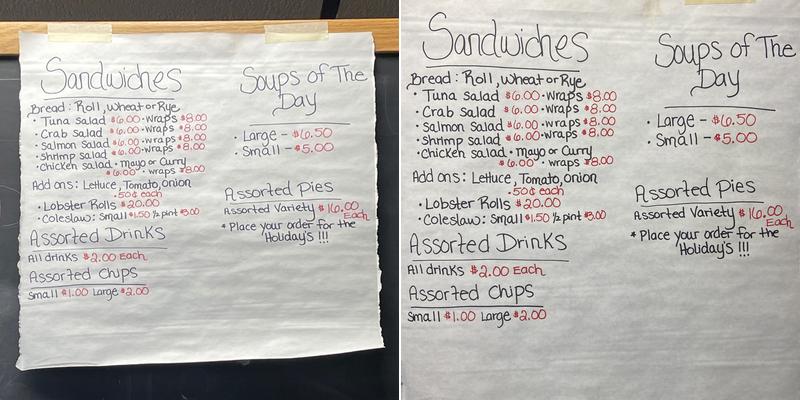 Sandwiches
Bread: Roll, wheat or Rye
• Tuna salad $6.00 • wraps $8.00
• Crab salad $6.00 • wraps $8.00
• Salmon salad $6.00 • wraps $8.00
• Shrimp salad $6.00 • wraps $8.00
• Chicken salad • mayo or Curry
$6.00 • wraps $8.00
Add ons: Lettuce, Tomato, onion
• 50¢ each
• Lobster Rolls $20.00
• Coleslaw: Small $1.50 ½ pint $3.00
Assorted Drinks
All drinks $2.00 Each
Assorted Chips
Small $1.00 Large $2.00
Soups of The
Day
• Large - $6.50
• Small - $5.00
Assorted Pies
Assorted Variety $16.00
Each
* Place your order for the
Holiday's !!!
Sandwiches
Bread: Roll, wheat or Rye
• Tuna salad $6.00 • wraps $8.00
• Crab salad $6.00 • wraps $8.00
• Salmon salad $6.00 • wraps $8.00
• Shrimp salad $6.00 • wraps $8.00
• Chicken salad • mayo or Curry
$6.00 • wraps $8.00
Add ons: Lettuce, Tomato, onion
• 50¢ each
• Lobster Rolls $20.00
• Coleslaw: Small $1.50 ½ pint $3.00
Assorted Drinks
All drinks $2.00 Each
Assorted Chips
Small $1.00 Large $2.00
Soups of The
Day
• Large - $6.50
• Small - $5.00
Assorted Pies
Assorted Variety $16.00
Each
* Place your order for the
Holiday's !!!